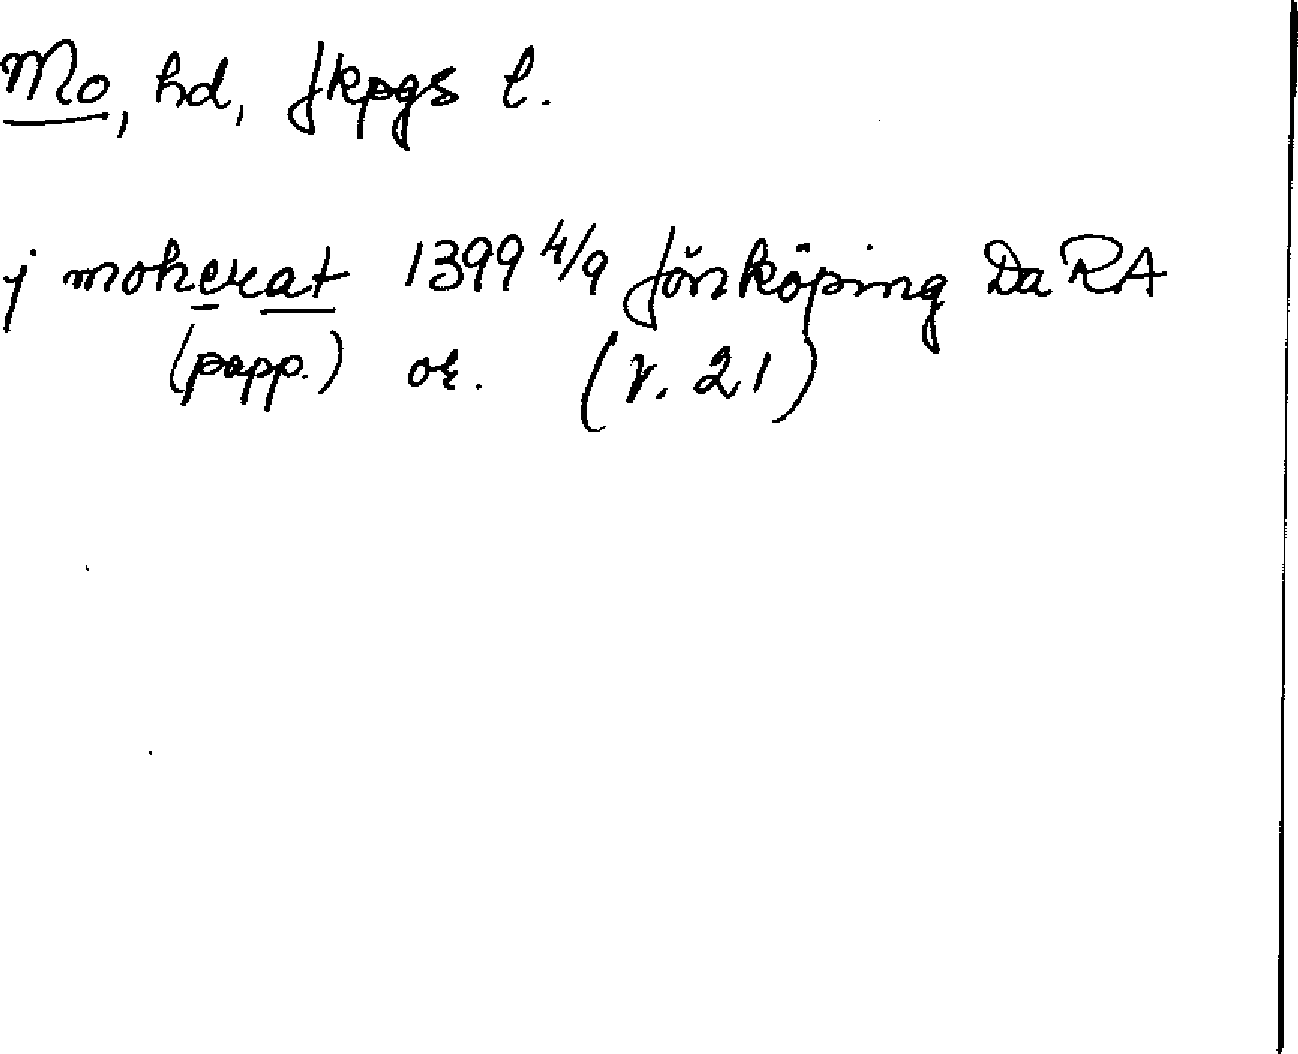 Mo, hd, Jkpgs l.
j moherat 1399 4/9 Jönköping Da RA
(papp.) or. (r. 21)